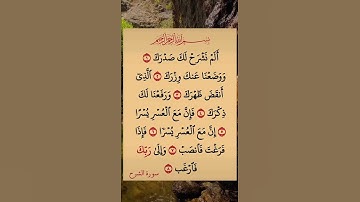 بسم الله الرحمن الرحيم
أَلَمْ نَشْرَحْ لَكَ صَدْرَكَ
وَوَضَعْنَا عَنكَ وِزْرَكَ ۝ ٱلَّذِىٓ
أَنقَضَ ظَهْرَكَ ۝ وَرَفَعْنَا لَكَ
ذِكْرَكَ ۝ فَإِنَّ مَعَ ٱلْعُسْرِ يُسْرًا
۝ إِنَّ مَعَ ٱلْعُسْرِ يُسْرًا ۝ فَإِذَا
فَرَغْتَ فَٱنصَبْ ۝ وَإِلَىٰ رَبِّكَ
فَٱرْغَب ۝ سورة الشرح